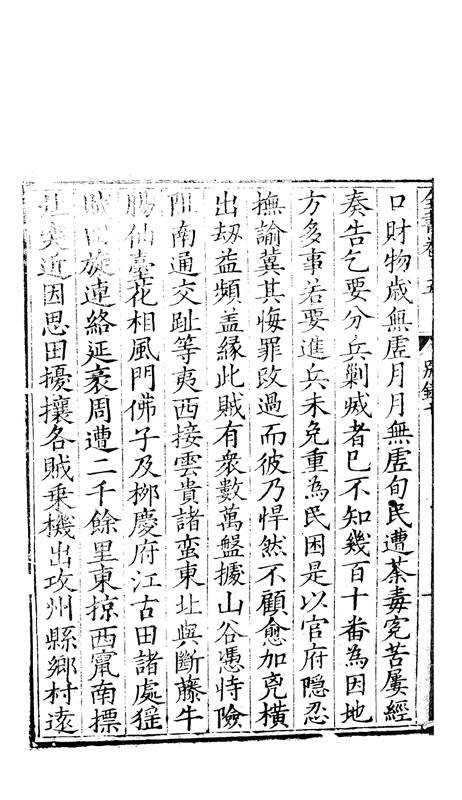 口財物歲無虗月月無虗旬民遭荼毒寃苦屢經
奏告乞要分兵剿㓕者巳不知幾百十番為因地
方多事若要進兵未免重為民困是以官府隐忍
撫諭冀其悔罪改過而彼乃悍然不顧愈加兇橫
出刼益頻盖緣此賊有衆數萬盤據山谷憑恃險
阻南通交趾等夷西接雲貴諸蛮東北與斷藤牛
腸仙臺花相風門佛子及柳慶府江古田諸處猺
賊回旋連絡延袤周遭二千餘里東掠西竄南摽
北突近因思田擾攘各賊乗機出攻州縣鄉村遠